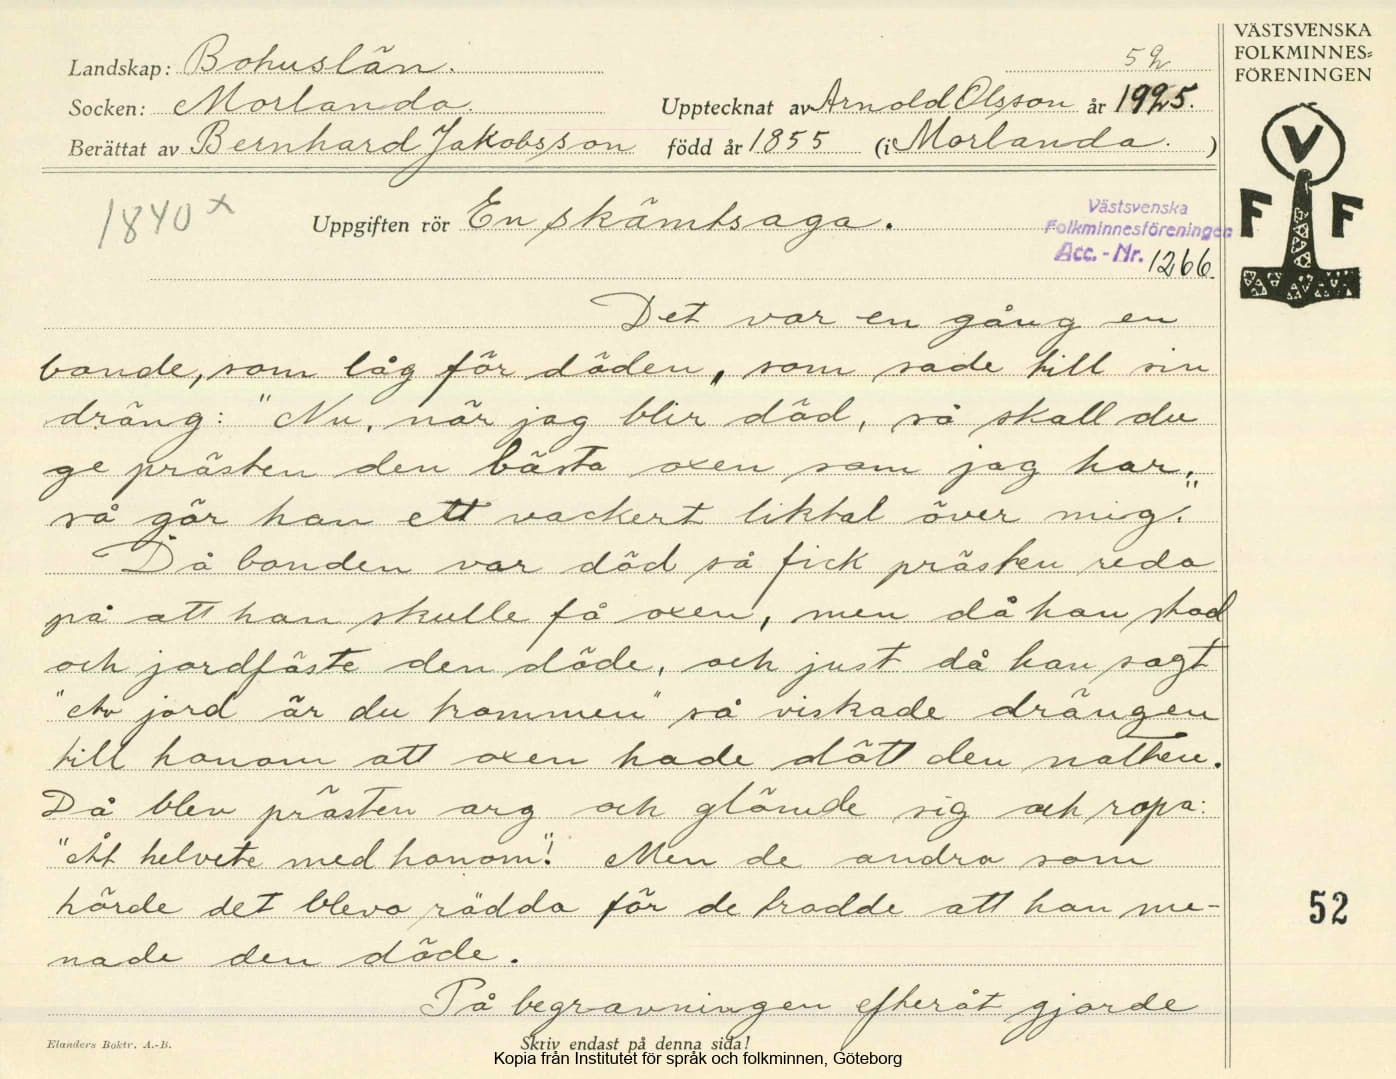 Landskap: Bohuslän.
52
VÄSTSVENSKA
FOLKMINNES=
FÖRENINGEN
Socken: Morlanda.
Upptecknat av Arnold Olsson år 1925.
Berättat av Bernhard Jakobsson född år 1855 (i Morlanda. )
V
F F
1840 x
Uppgiften rör En skämtsaga.
Västsvenska
Folkminnesföreningen
Acc. - Nr. 1266.
Det var en gång en
bonde, som låg för döden, som sade till sin
dräng: "Nu, när jag blir död, så skall du
ge prästen den bästa oxen som jag har,
så gör han ett vackert liktal över mig."
Då bonden var död så fick prästen reda
på att han skulle få oxen, men då han stod
och jordfäste den döde, och just då han sagt
"Av jord är du kommen" så viskade drängen
till honom att oxen hade dött den natten.
Då blev prästen arg och glömde sig och ropa:
"Åt helvete med honom"! Men de andra som
hörde det blevo rädda för de trodde att han me-
nade den döde.
52
På begravningen efteråt gjorde
Elanders Boktr. A.-B.
Skriv endast på denna sida!
Kopia från Institutet för språk och folkminnen, Göteborg